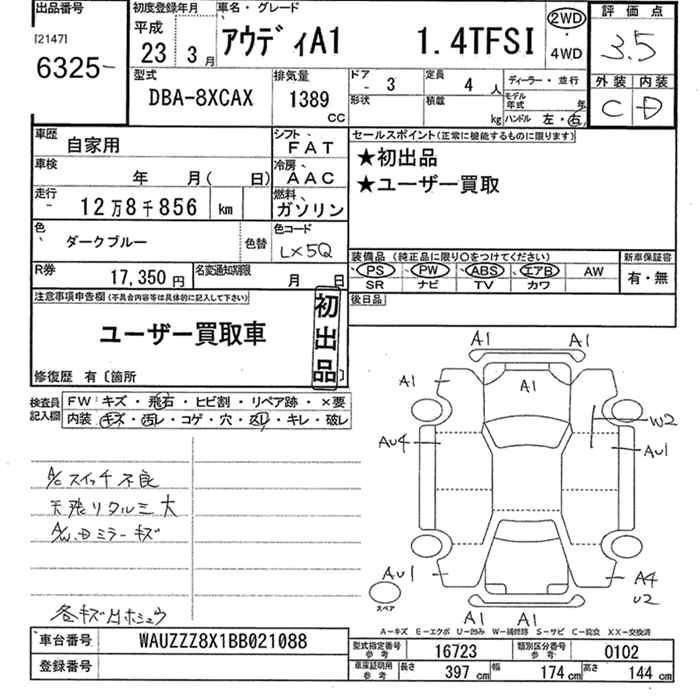 出品番号
[2147]
6325
初度登録年月
平成
23年 3月
車名・グレード
アウディA1 1.4TFSI
2WD
・
4WD
評価点
3.5
外装 内装
C D
型式
DBA-8XCAX
排気量
1389
CC
ドア
- 3
定員
4 人
ディーラー・並行
形状
積載
kg
モデル年式
年
ハンドル 左・右
車歴
自家用
シフト
FAT
車検
年 月( 日)
冷房
AAC
走行
12万8千856 km
燃料
ガソリン
色
ダークブルー
色替
色コード
LX5Q
R券
17,350 円
名変通知期限
月 日
セールスポイント(正常に機能するものに限ります)
★初出品
★ユーザー買取
装備品 (純正品に限り○をつけてください)
新車保証書
PS PW ABS エアB AW
SR ナビ TV カワ
有・無
後日品
注意事項申告欄(不具合内容等は具体的に記入して下さい)
ユーザー買取車
初出品
修復歴 有〔箇所 〕
検査員記入欄
FW キズ・飛石・ヒビ割・リペア跡・×要
内装 キズ・汚レ・コゲ・穴・スリ・キレ・破レ
A/Cスイッチ不良
天張リタルミ大
A/W、Dミラーキズ
各キズ凹ホシュウ
A1 A1
A1 A1 A1
W2
AU4 AU1
AU1 A4
U2
A1 A1
スペア
A-キズ E-エクボ U-凹み W-補修跡 S-サビ C-腐食 XX-交換済
車台番号
WAUZZZ8X1BB021088
登録番号
型式指定番号 参考
16723
類別区分番号 参考
0102
車庫証明用 参考
長さ 397 cm 幅 174 cm 高さ 144 cm